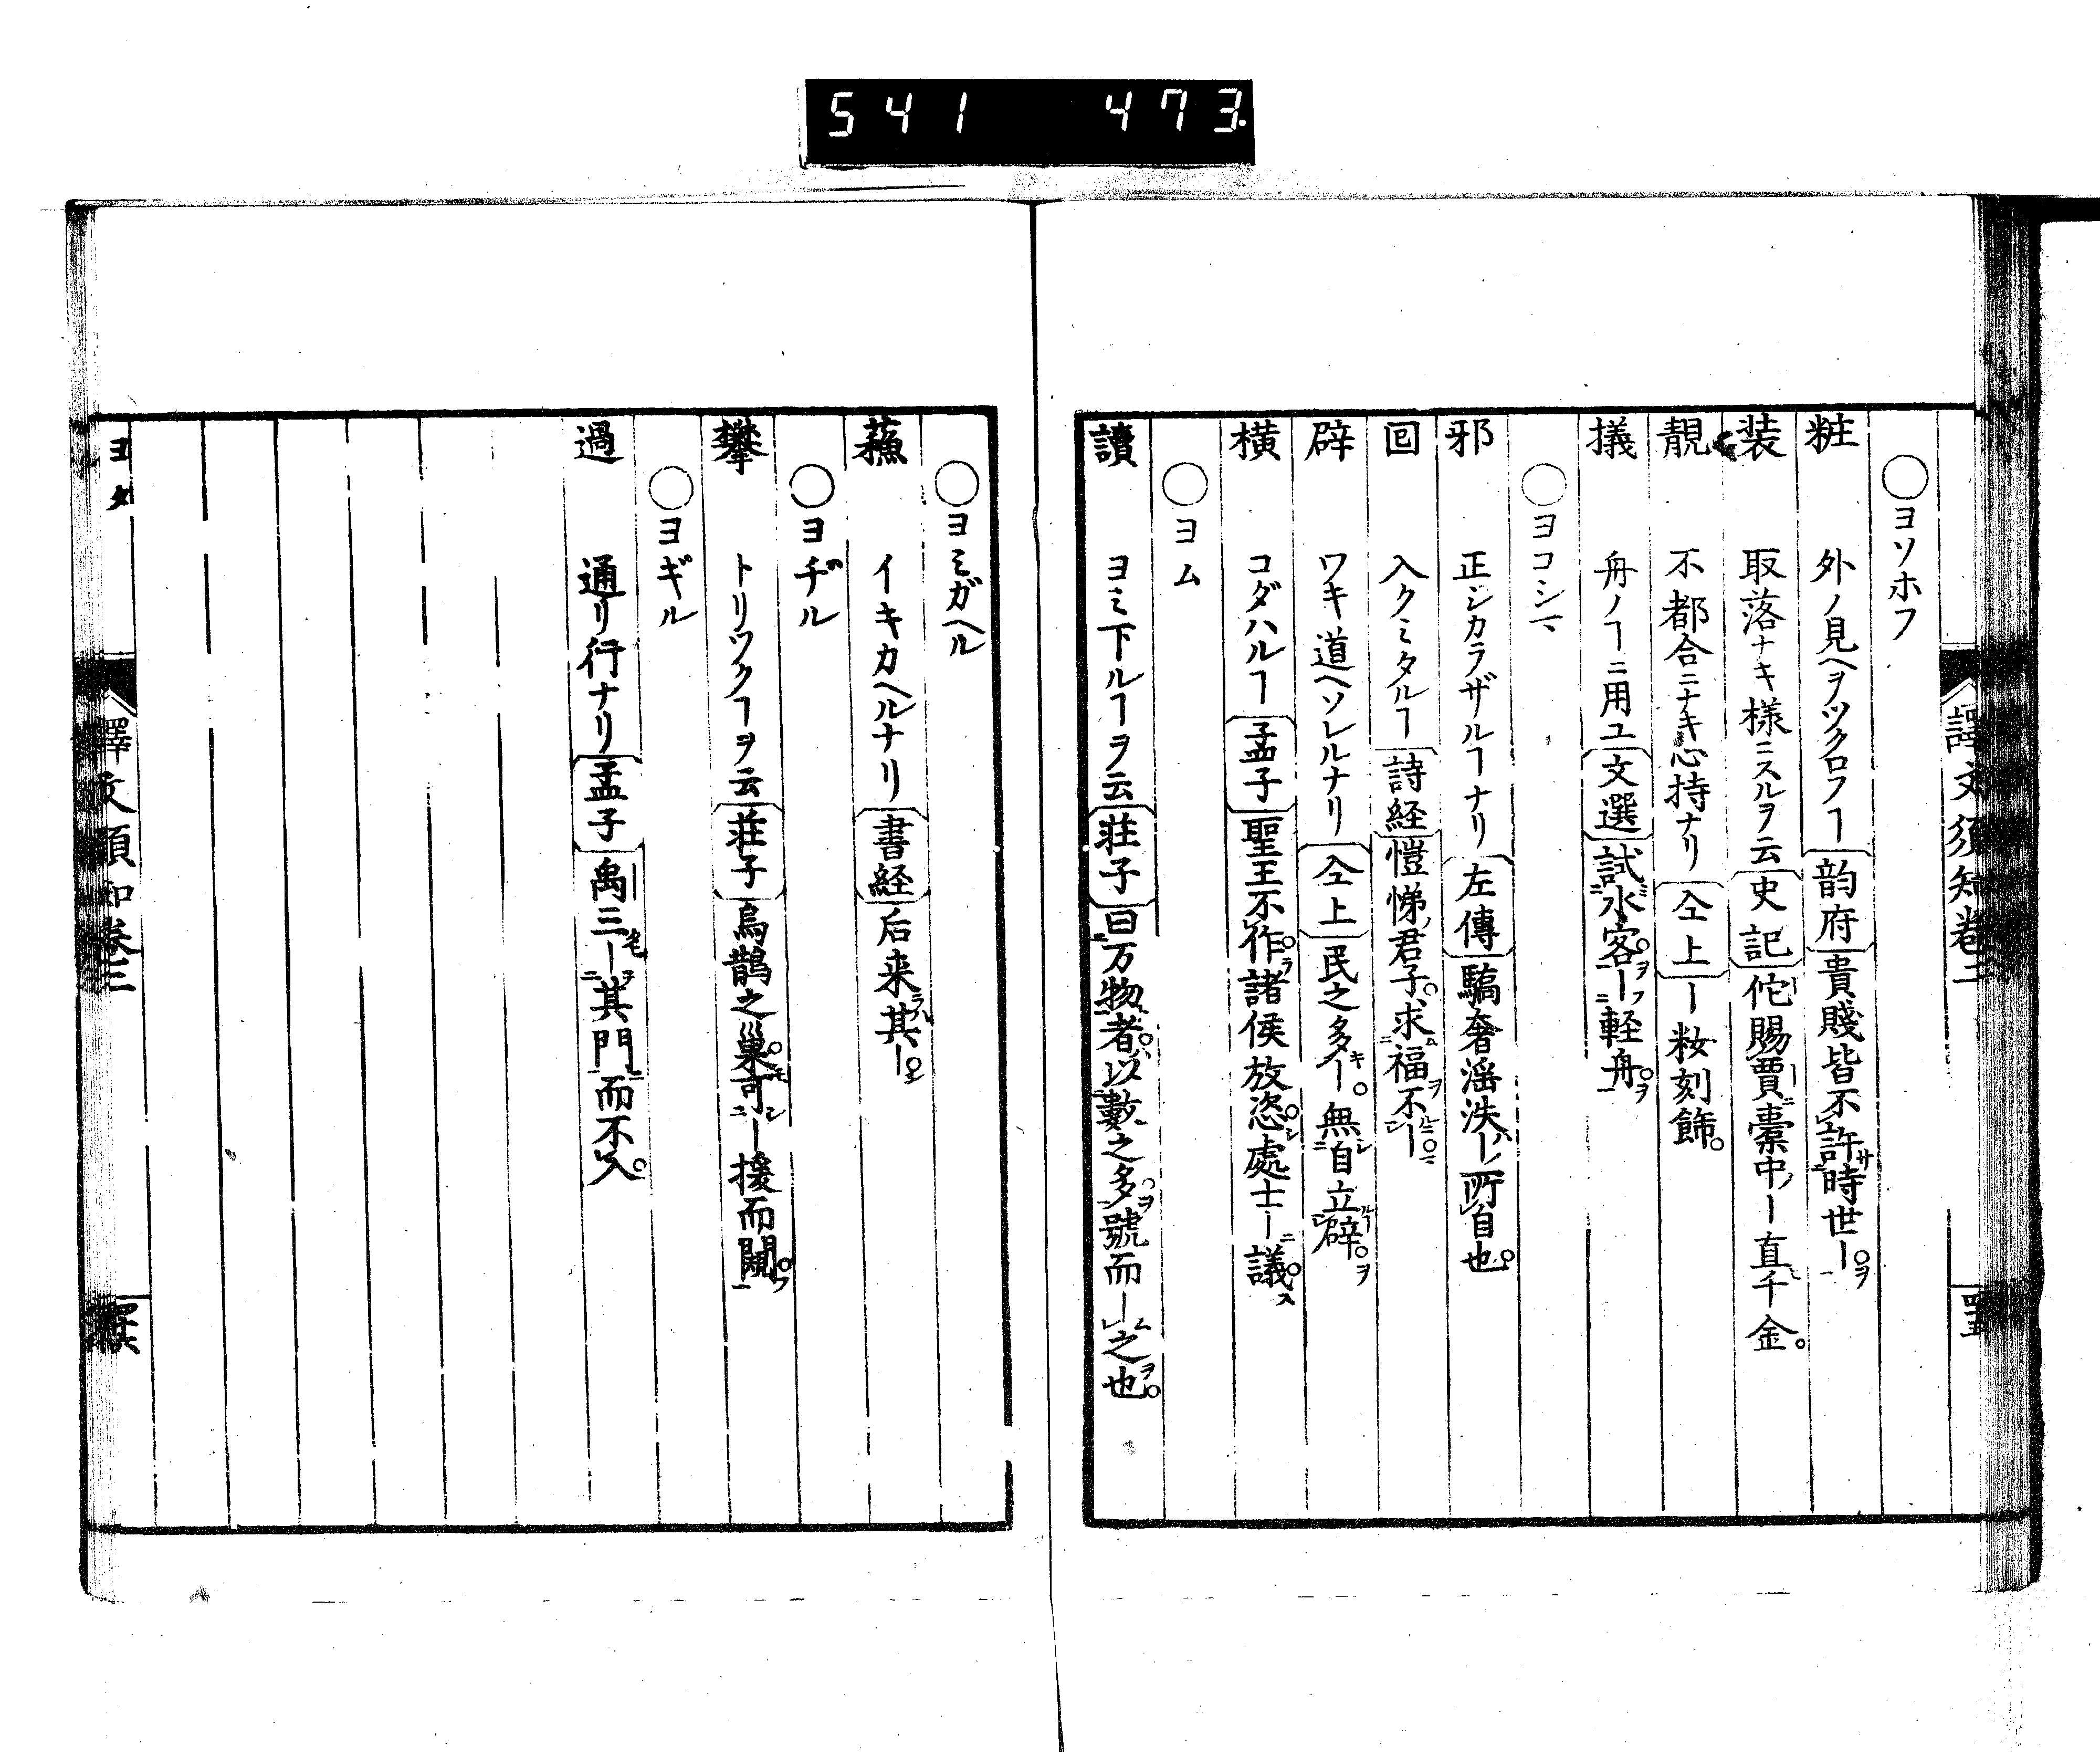 541 473
譯文須知卷三
○ヨソホフ
粧 外ノ見ヘヲツクロフヿ 韵府 貴賤皆不許サ時世ー。ヲ
装 取落ナキ様ニスルヲ云 史記 佗賜賈ニ橐中ノー直千金。
靚 不都合ニナキ心持ナリ 仝上 ー粧刻飾。
擬 舟ノヿニ用ユ 文選 試水客。ヲーフ軽舟。ヲ
○ヨコシマ
邪 正シカラザルヿナリ 左傳 驕奢淫泆ハー所自也。
回 入クミタルヿ 詩経 愷悌ノ君子。求ム福ヲ不ー。
辟 ワキ道ヘソレルナリ 仝上 民之多キー。無シ自立ルヿ辟。ヲ
横 コダハルヿ 孟子 聖王不作。ラ諸侯放恣。シ處士ー議。ス
○ヨム
讀 ヨミ下ルヿヲ云 荘子 曰万物者。以數之多。ヲ號而ーム之ヲ也。
○ヨミガヘル
蘓 イキカヘルナリ 書経 后来ラハ其ー。
○ヨヂル
攀 トリツクヿヲ云 荘子 烏鵲之巣。可シー援而闚。フ
○ヨギル
過 通リ行ナリ 孟子 禹三ー其門ヲ而不入。
譯文須知卷三